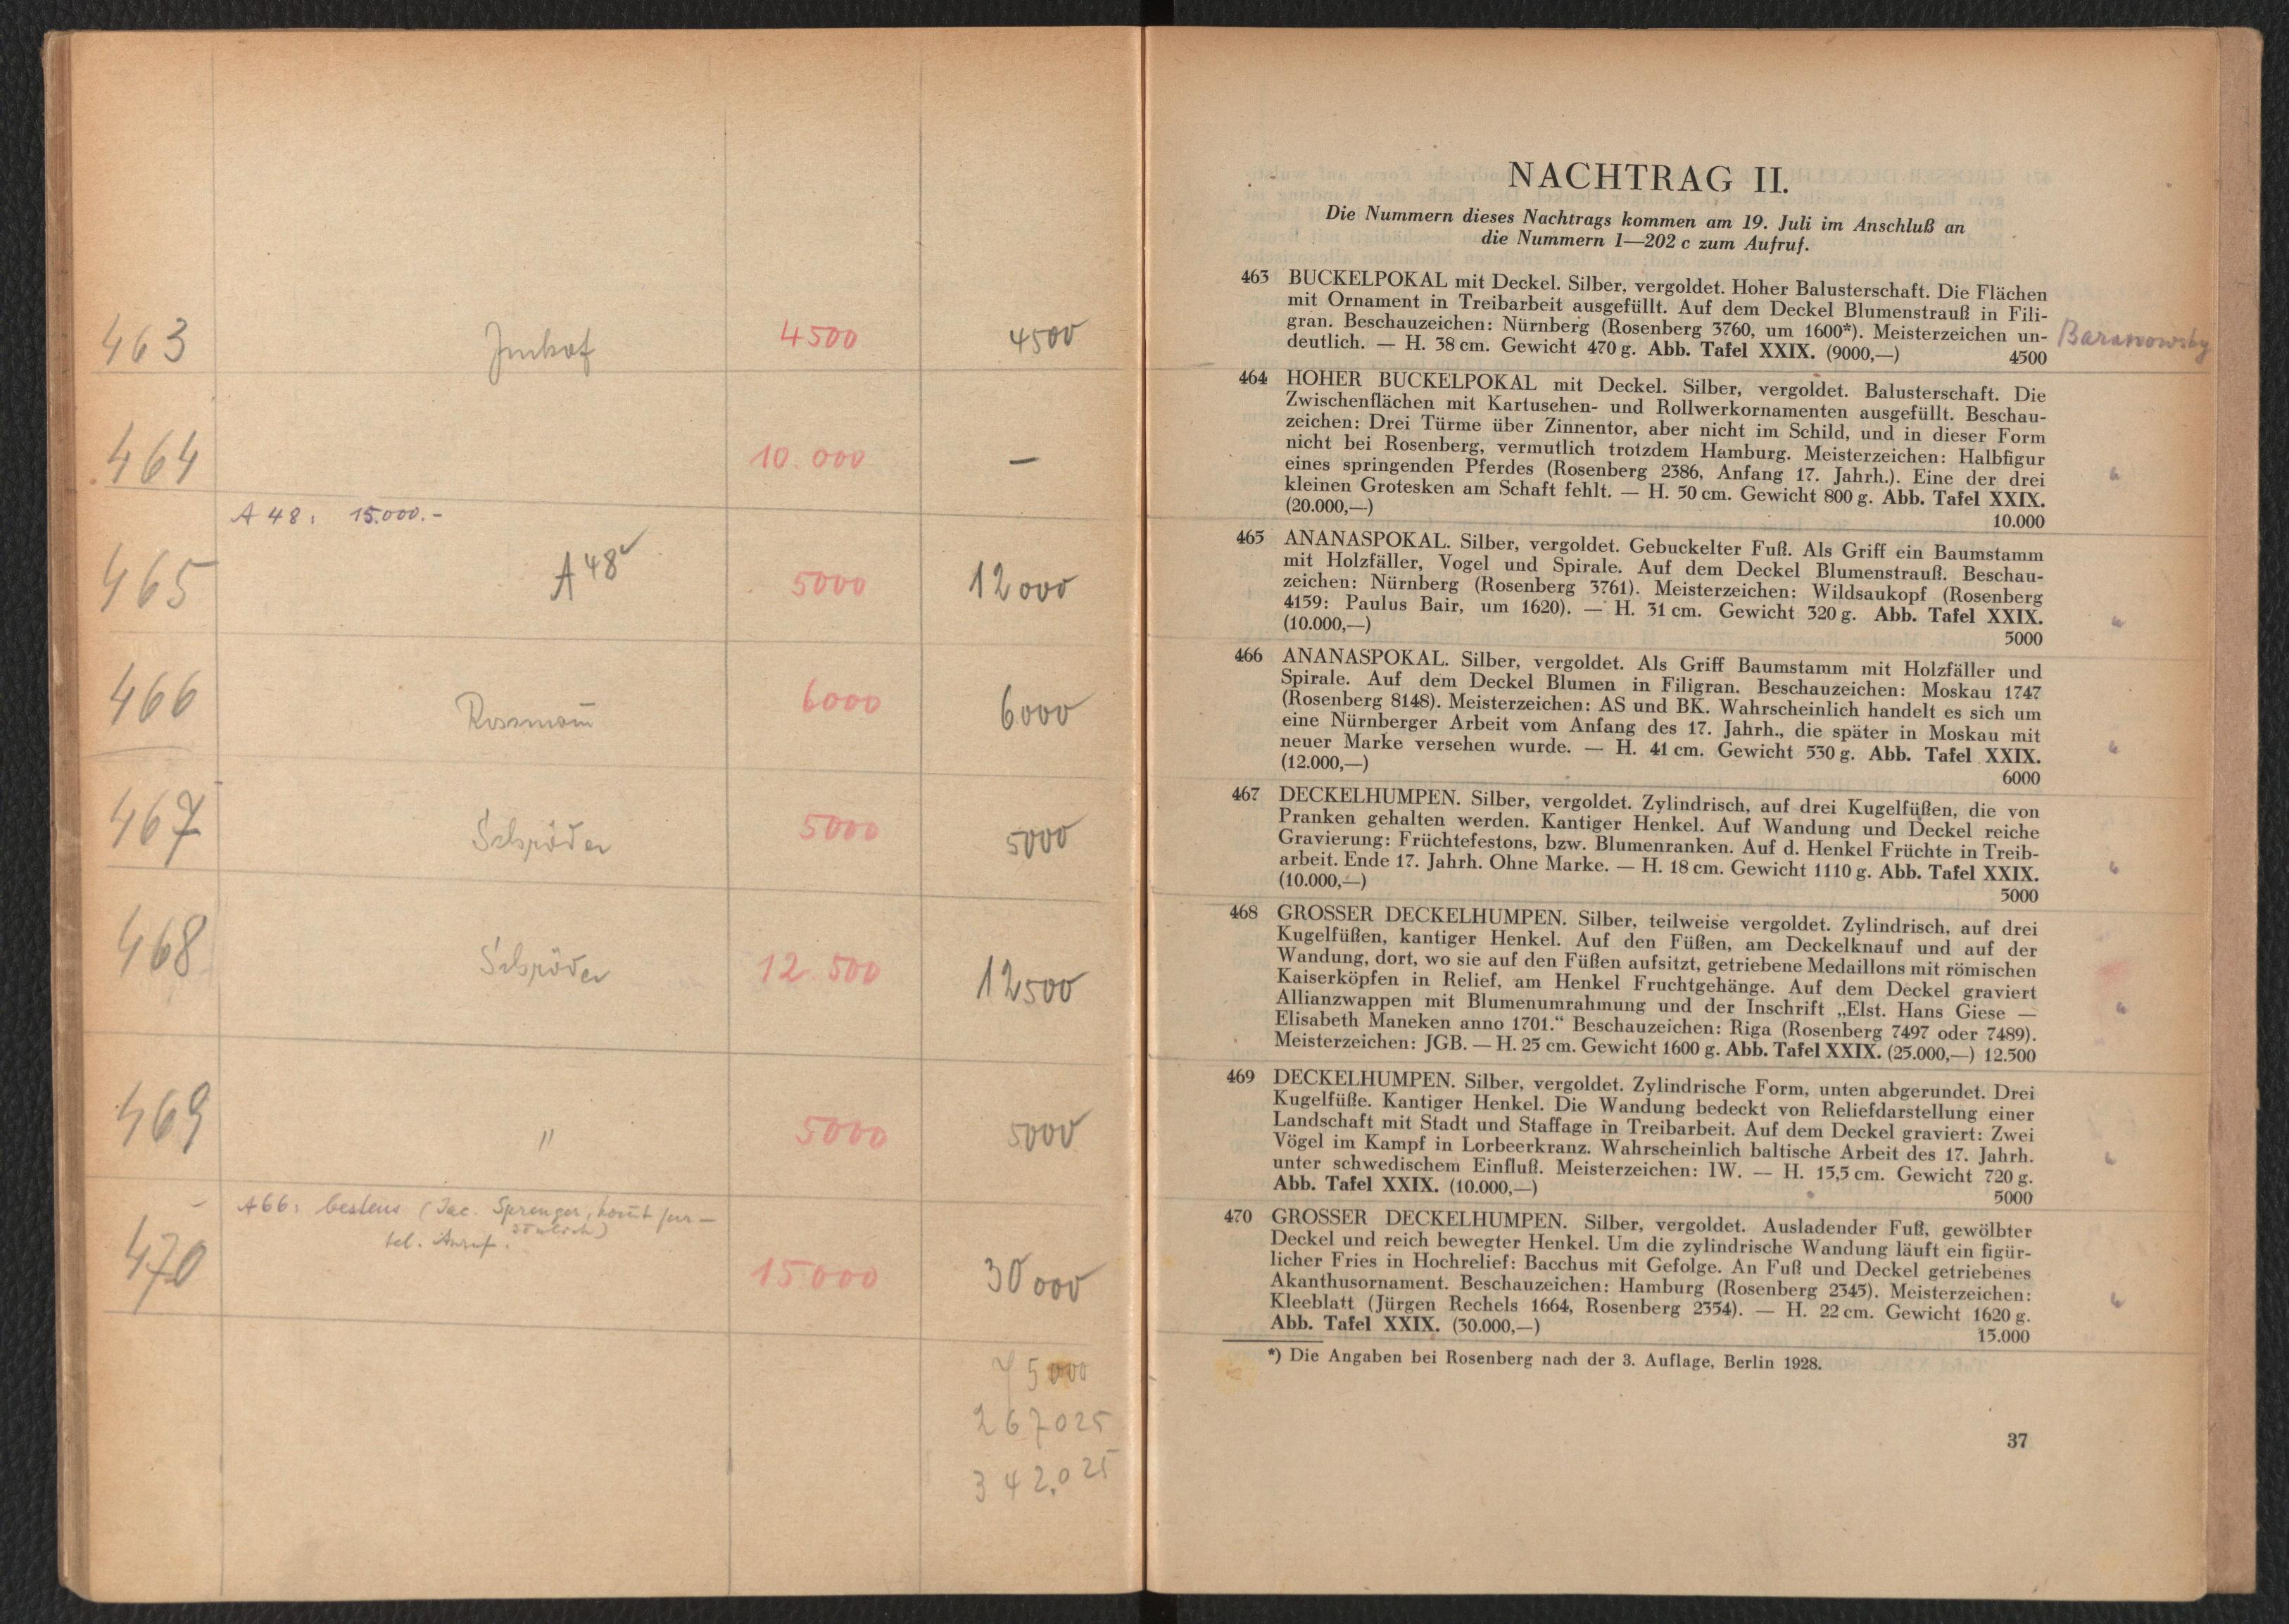 463 Imhof 4500 4500
464 10.000 —
A 48: 15.000.-
465 A 48 5000 12000
466 Rossmann 6000 6000
467 Schröder 5000 5000
468 Schröder 12.500 12500
469 " 5000 5000
A 66: bestens (Jac. Sprenger, kommt per-
sönlich)
tel. Anruf.
470 15000 30000
75000
267025
342.025
NACHTRAG II.
Die Nummern dieses Nachtrags kommen am 19. Juli im Anschluß an
die Nummern 1—202 c zum Aufruf.
463 BUCKELPOKAL mit Deckel. Silber, vergoldet. Hoher Balusterschaft. Die Flächen
mit Ornament in Treibarbeit ausgefüllt. Auf dem Deckel Blumenstrauß in Fili-
gran. Beschauzeichen: Nürnberg (Rosenberg 3760, um 1600*). Meisterzeichen un-
deutlich. — H. 38 cm. Gewicht 470 g. Abb. Tafel XXIX. (9000,—) 4500
Baranowsky
464 HOHER BUCKELPOKAL mit Deckel. Silber, vergoldet. Balusterschaft. Die
Zwischenflächen mit Kartuschen- und Rollwerkornamenten ausgefüllt. Beschau-
zeichen: Drei Türme über Zinnentor, aber nicht im Schild, und in dieser Form
nicht bei Rosenberg, vermutlich trotzdem Hamburg. Meisterzeichen: Halbfigur
eines springenden Pferdes (Rosenberg 2386, Anfang 17. Jahrh.). Eine der drei
kleinen Grotesken am Schaft fehlt. — H. 50 cm. Gewicht 800 g. Abb. Tafel XXIX.
(20.000,—) 10.000
465 ANANASPOKAL. Silber, vergoldet. Gebuckelter Fuß. Als Griff ein Baumstamm
mit Holzfäller, Vogel und Spirale. Auf dem Deckel Blumenstrauß. Beschau-
zeichen: Nürnberg (Rosenberg 3761). Meisterzeichen: Wildsaukopf (Rosenberg
4159: Paulus Bair, um 1620). — H. 31 cm. Gewicht 320 g. Abb. Tafel XXIX.
(10.000,—) 5000
466 ANANASPOKAL. Silber, vergoldet. Als Griff Baumstamm mit Holzfäller und
Spirale. Auf dem Deckel Blumen in Filigran. Beschauzeichen: Moskau 1747
(Rosenberg 8148). Meisterzeichen: AS und BK. Wahrscheinlich handelt es sich um
eine Nürnberger Arbeit vom Anfang des 17. Jahrh., die später in Moskau mit
neuer Marke versehen wurde. — H. 41 cm. Gewicht 530 g. Abb. Tafel XXIX.
(12.000,—) 6000
467 DECKELHUMPEN. Silber, vergoldet. Zylindrisch, auf drei Kugelfüßen, die von
Pranken gehalten werden. Kantiger Henkel. Auf Wandung und Deckel reiche
Gravierung: Früchtefestons, bzw. Blumenranken. Auf d. Henkel Früchte in Treib-
arbeit. Ende 17. Jahrh. Ohne Marke. — H. 18 cm. Gewicht 1110 g. Abb. Tafel XXIX.
(10.000,—) 5000
468 GROSSER DECKELHUMPEN. Silber, teilweise vergoldet. Zylindrisch, auf drei
Kugelfüßen, kantiger Henkel. Auf den Füßen, am Deckelknauf und auf der
Wandung, dort, wo sie auf den Füßen aufsitzt, getriebene Medaillons mit römischen
Kaiserköpfen in Relief, am Henkel Fruchtgehänge. Auf dem Deckel graviert
Allianzwappen mit Blumenumrahmung und der Inschrift „Elst. Hans Giese —
Elisabeth Maneken anno 1701.“ Beschauzeichen: Riga (Rosenberg 7497 oder 7489).
Meisterzeichen: JGB. — H. 25 cm. Gewicht 1600 g. Abb. Tafel XXIX. (25.000,—) 12.500
469 DECKELHUMPEN. Silber, vergoldet. Zylindrische Form, unten abgerundet. Drei
Kugelfüße. Kantiger Henkel. Die Wandung bedeckt von Reliefdarstellung einer
Landschaft mit Stadt und Staffage in Treibarbeit. Auf dem Deckel graviert: Zwei
Vögel im Kampf in Lorbeerkranz. Wahrscheinlich baltische Arbeit des 17. Jahrh.
unter schwedischem Einfluß. Meisterzeichen: IW. — H. 15,5 cm. Gewicht 720 g.
Abb. Tafel XXIX. (10.000,—) 5000
470 GROSSER DECKELHUMPEN. Silber, vergoldet. Ausladender Fuß, gewölbter
Deckel und reich bewegter Henkel. Um die zylindrische Wandung läuft ein figür-
licher Fries in Hochrelief: Bacchus mit Gefolge. An Fuß und Deckel getriebenes
Akanthusornament. Beschauzeichen: Hamburg (Rosenberg 2345). Meisterzeichen:
Kleeblatt (Jürgen Rechels 1664, Rosenberg 2354). — H. 22 cm. Gewicht 1620 g.
Abb. Tafel XXIX. (30.000,—) 15.000
*) Die Angaben bei Rosenberg nach der 3. Auflage, Berlin 1928.
37